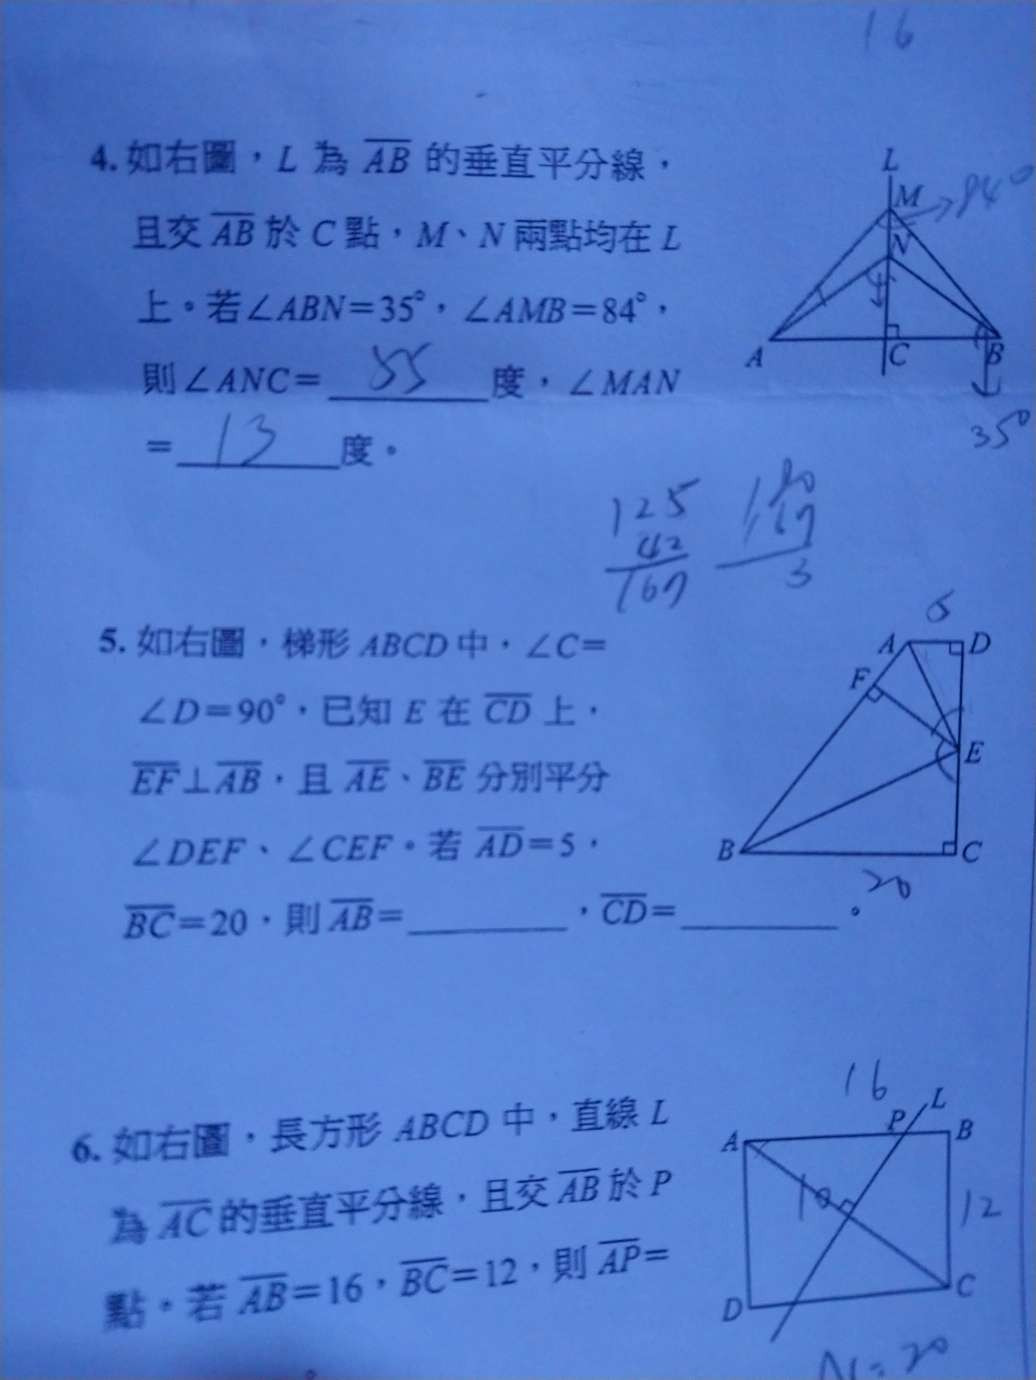 16
4. 如右圖，L 為 AB 的垂直平分線，
且交 AB 於 C 點，M、N 兩點均在 L
上。若∠ABN=35°，∠AMB=84°，
則∠ANC= 55 度，∠MAN
= 13 度。
L
M
84°
N
A
C
B
35°
125
42
167
180
167
3
5. 如右圖，梯形 ABCD 中，∠C=
∠D=90°，已知 E 在 CD 上，
EF⊥AB，且 AE、BE 分別平分
∠DEF、∠CEF。若 AD=5，
BC=20，則 AB=________，CD=________。
A
D
F
E
B
C
20
6. 如右圖，長方形 ABCD 中，直線 L
為 AC 的垂直平分線，且交 AB 於 P
點。若 AB=16，BC=12，則 AP=
16
L
A
P
B
10
12
D
C
20